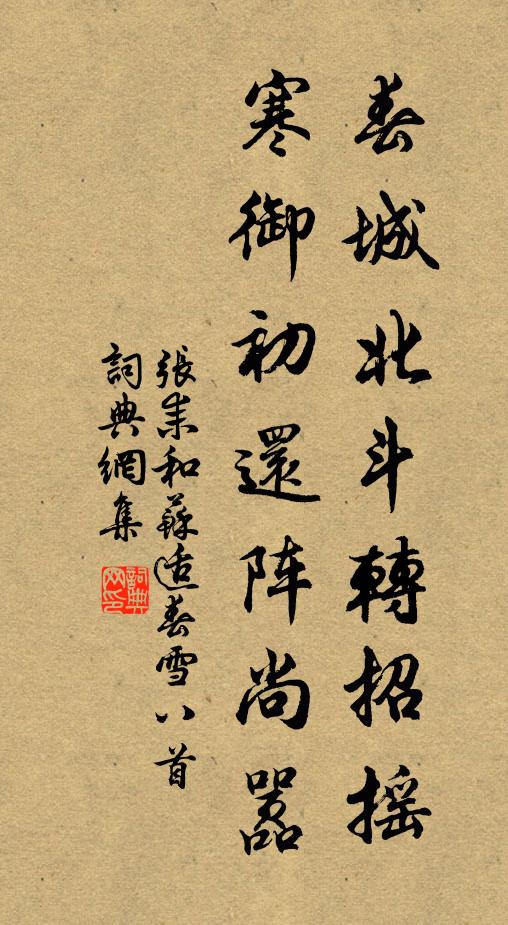 春城北斗轉招摇
寒御初還阵尚嚣
張耒和蘇适春雪八首
詞典網集
詞典网印